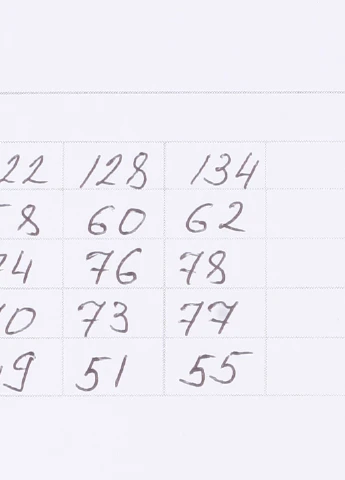 22 128 134
8 60 62
4 76 78
0 73 77
9 51 55